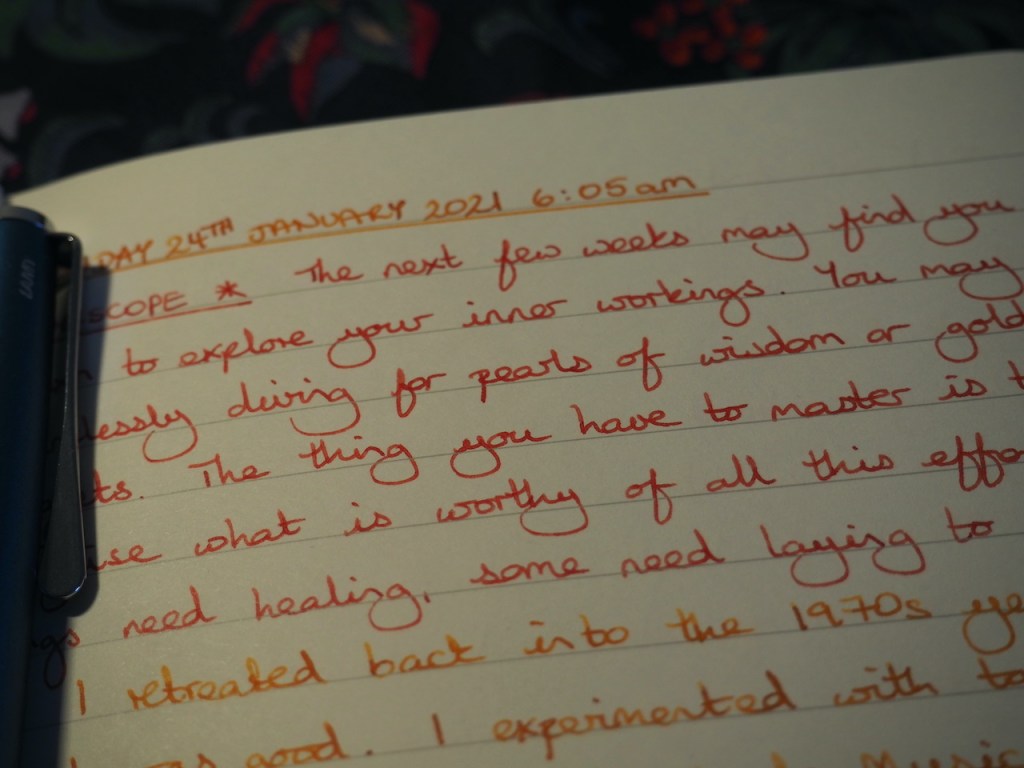 DAY 24TH JANUARY 2021 6:05am
SCOPE * The next few weeks may find you
to explore your inner workings. You may
lessly diving for pearls of wisdom or gold
ts. The thing you have to master is t
ise what is worthy of all this effo
gs need healing, some need laying to
I retreated back into the 1970s ye
good. I experimented with to
Music